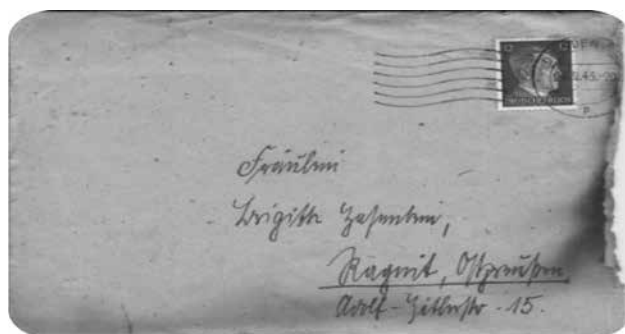 12 12
DEUTSCHES REICH
Fräulein
Brigitte Hasenbein,
Ragnit, Ostpreußen
Adolf-Hitlerstr. 15.